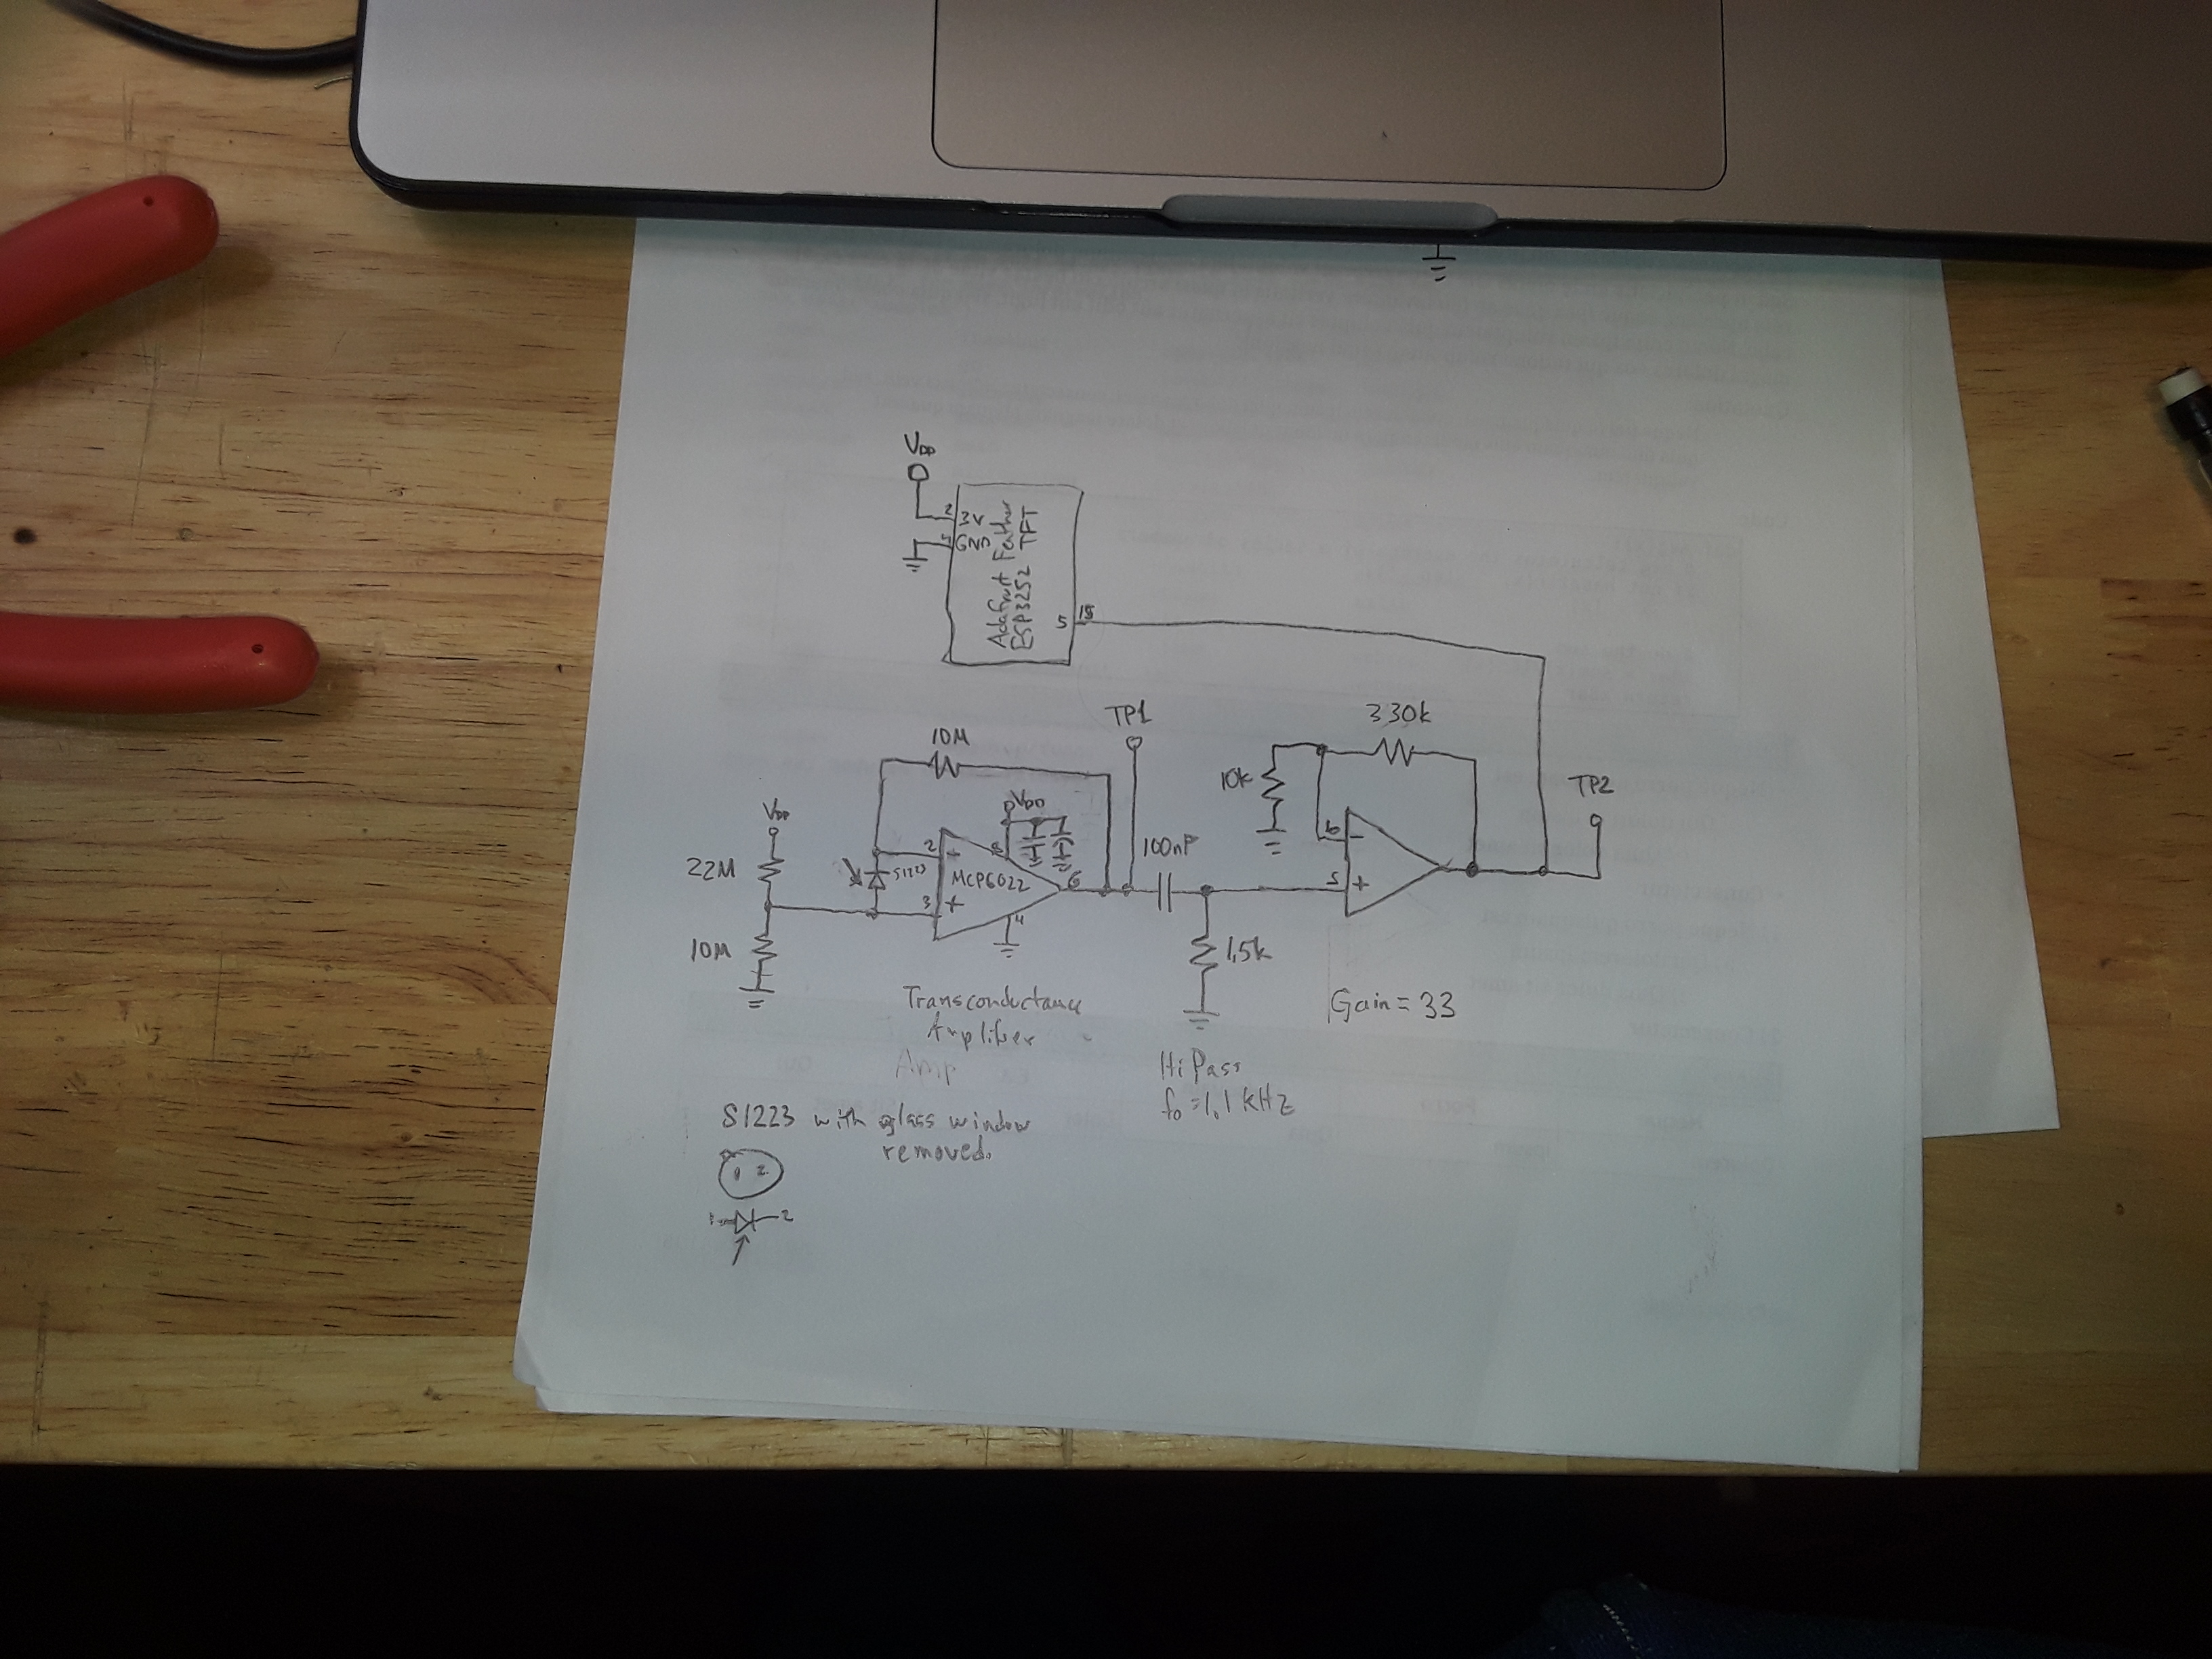 VDD
2
3V
GND
Adafruit Feather
ESP32S2 TFT
5
18
TP1
330k
10M
10k
TP2
VDD
VDD
22M
2
S1223
8
100nF
6
MCP6022
6
-
3
+
5
+
4
10M
1,5k
Transconductance
Amplifier
Amp
Gain = 33
HiPass
f0 = 1,1 kHz
S1223 with glass window
removed.
1 2
1
2